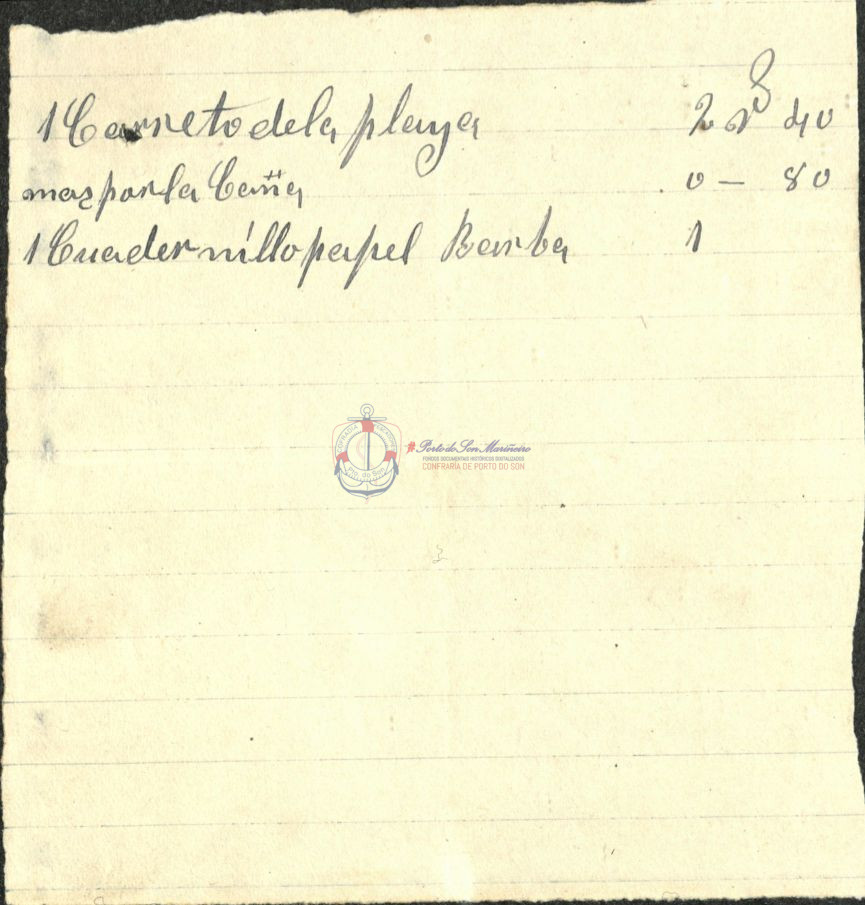 1 Carreto de la playa 2 rs 40
mas por la Caña 0 - 80
1 Cuadernillo papel Barba 1
#Porto do Son Mariñeiro
FONDOS DOCUMENTAIS HISTÓRICOS DIXITALIZADOS
CONFRARÍA DE PORTO DO SON